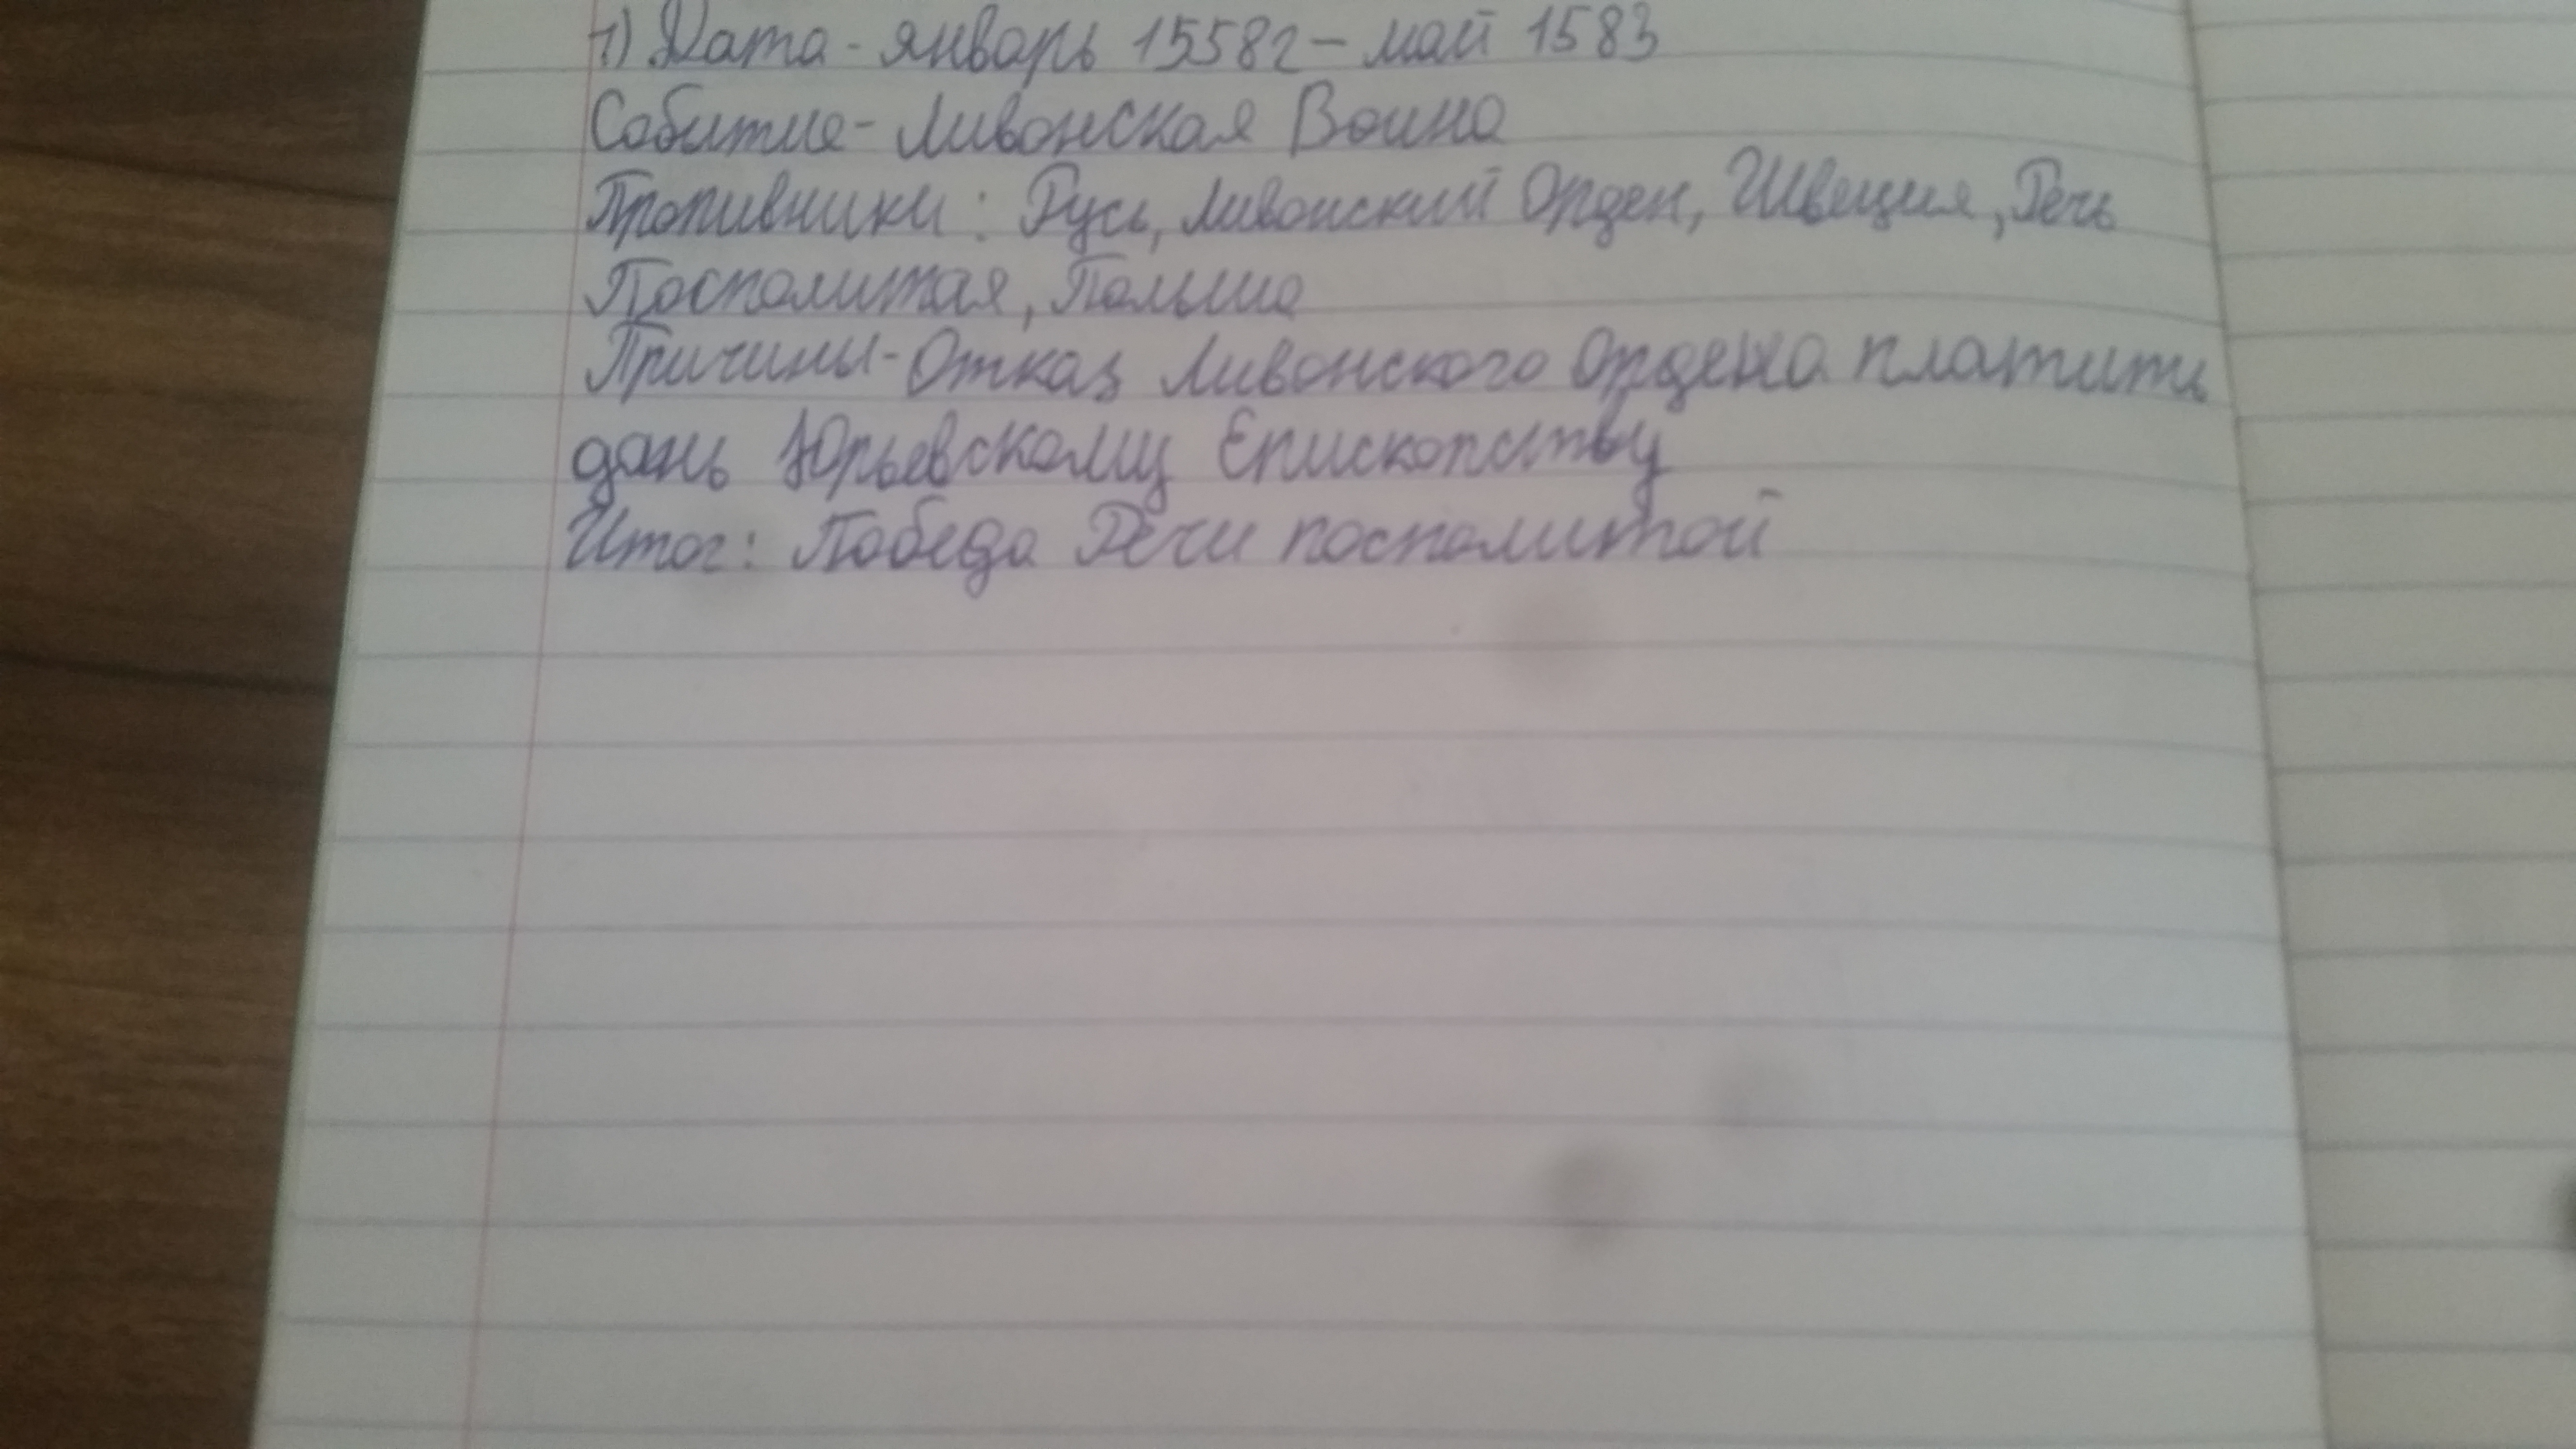 1) Дата - январь 1558г – май 1583
Событие - Ливонская Воина
Противники: Русь, Ливонский Орден, Швеция, Речь
Посполитая, Польша
Причины - Отказ Ливонского Ордена платить
дань Юрьевскому Епископству
Итог: Победа Речи посполитой